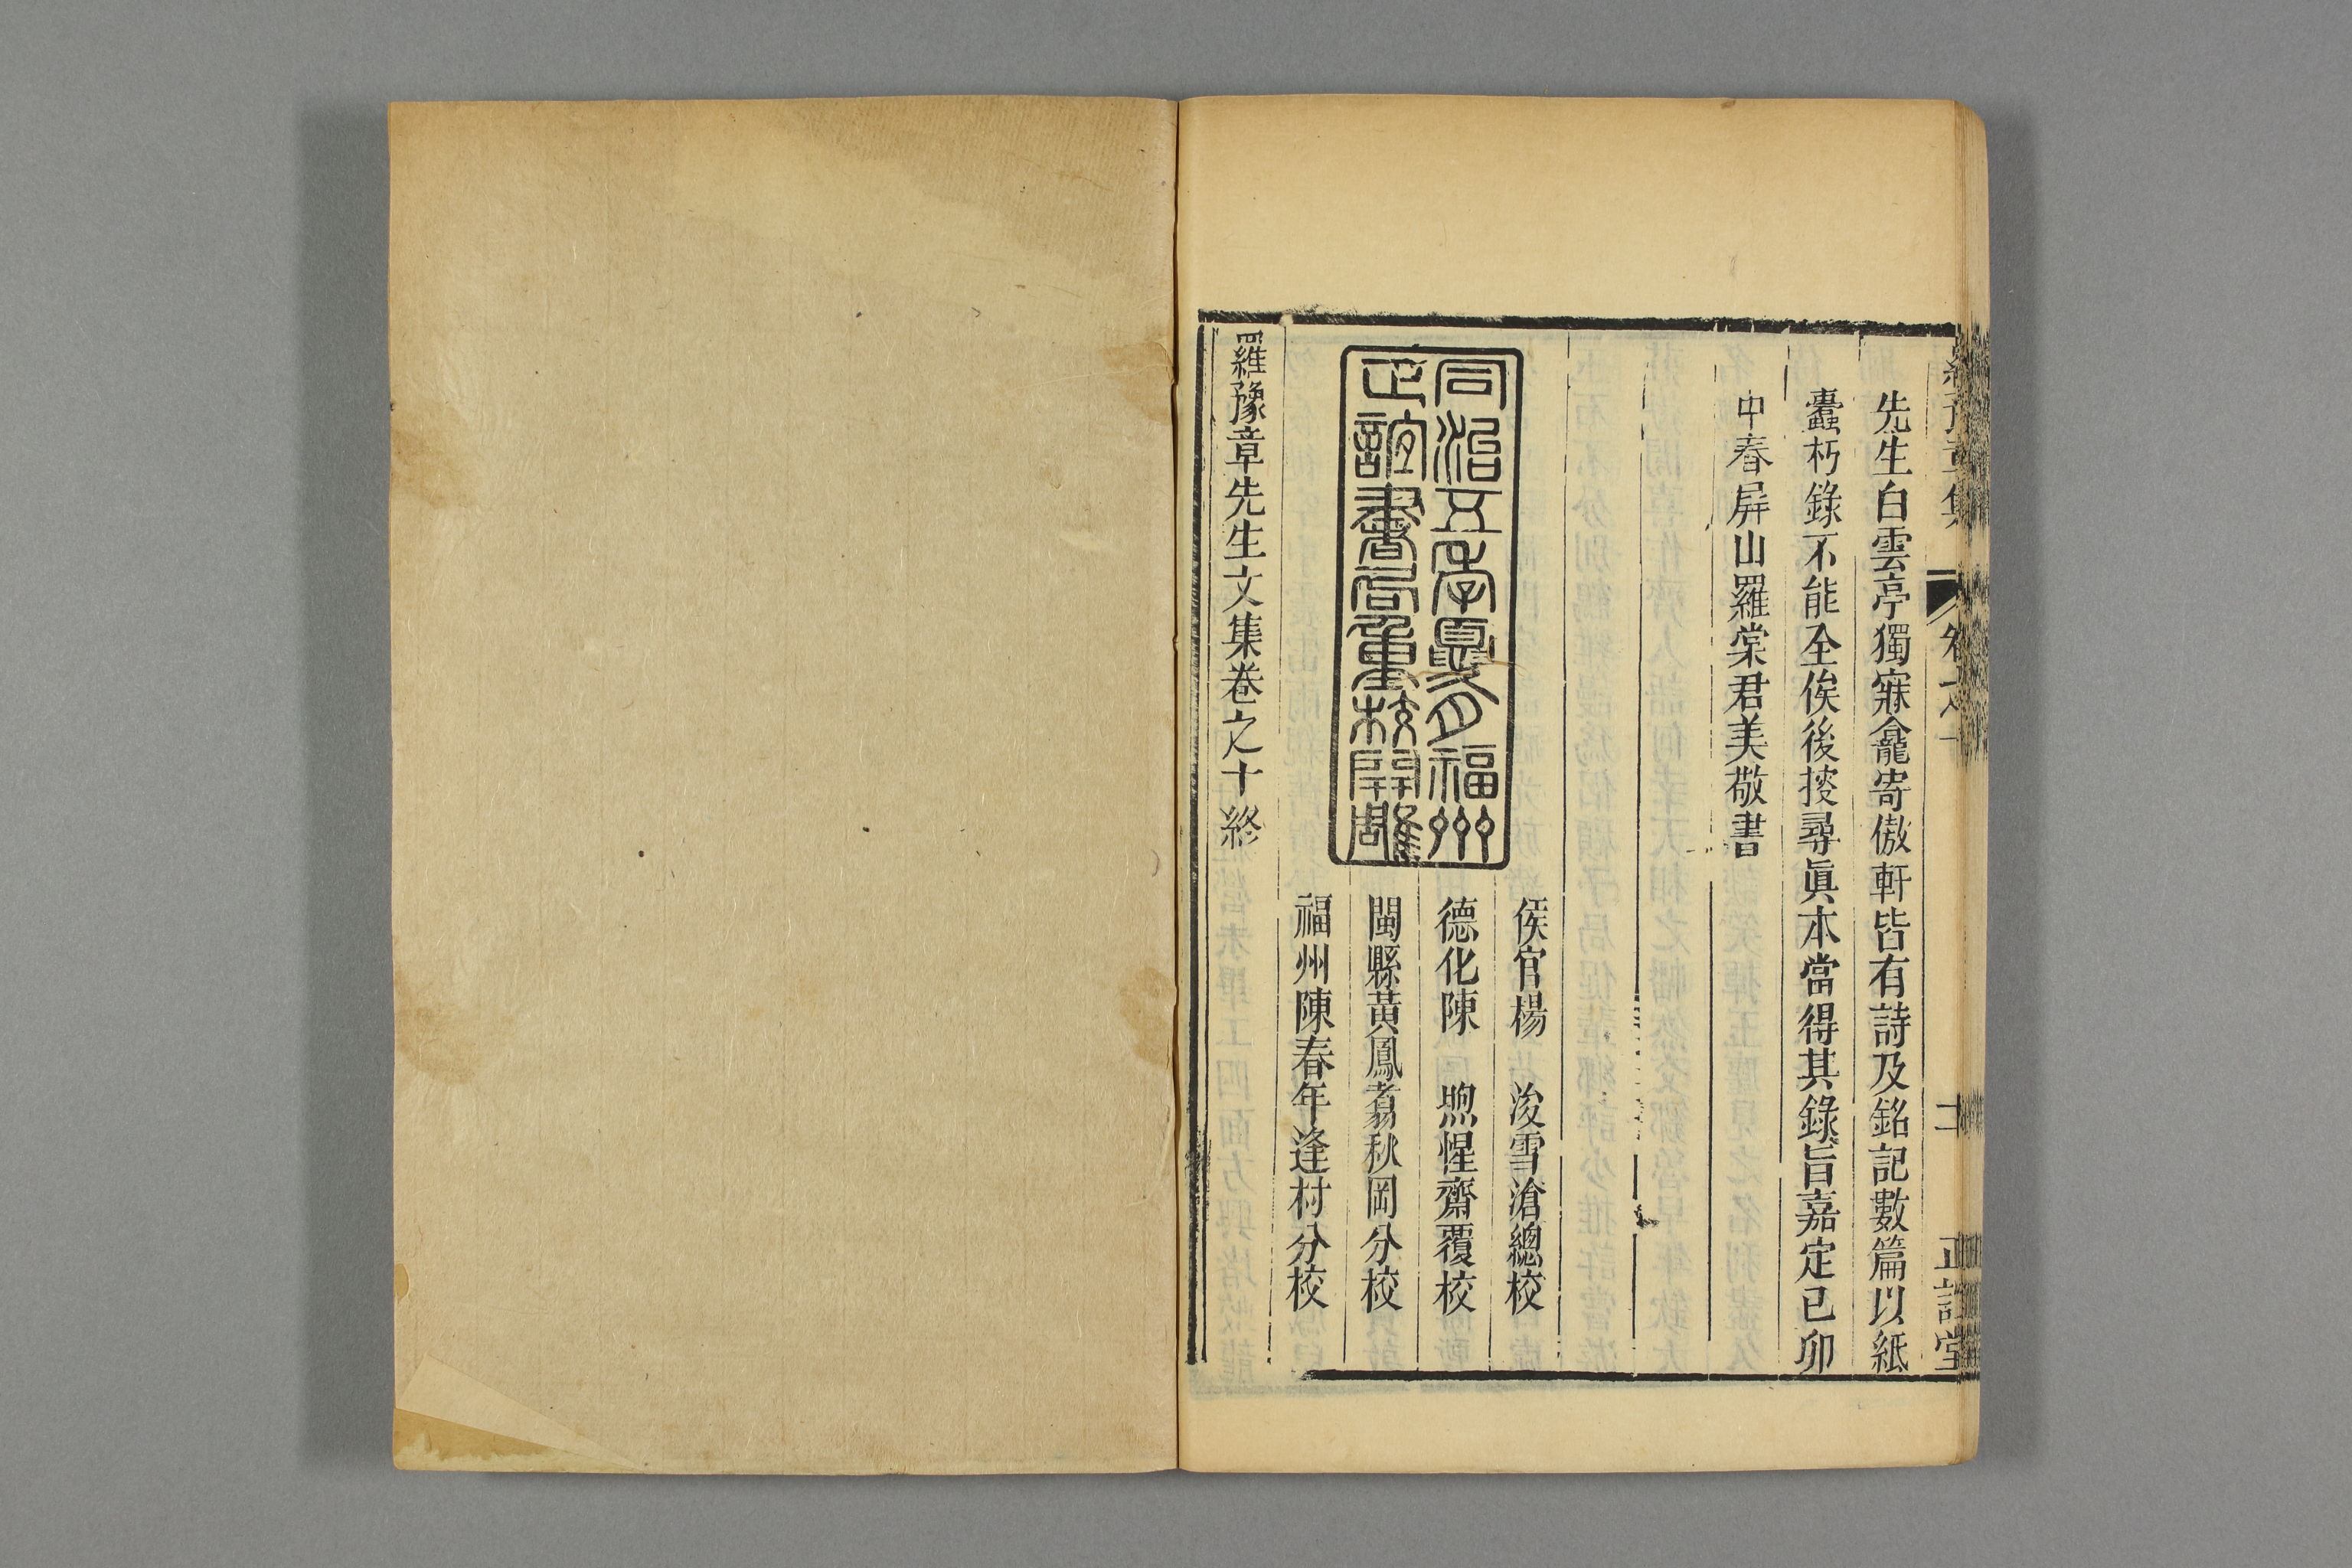 先生白雲亭獨寐龕寄傲軒皆有詩及銘記數篇以紙
蠹朽錄不能全俟後搜尋眞本當得其錄旨嘉定己卯
中春屏山羅棠君美敬書
同治五年夏月福州
正誼書局重校開雕
侯官楊　浚雪滄總校
德化陳　煦惺齋覆校
閩縣黃鳳翥秋岡分校
福州陳春年逢村分校
羅豫章先生文集卷之十終
正誼堂